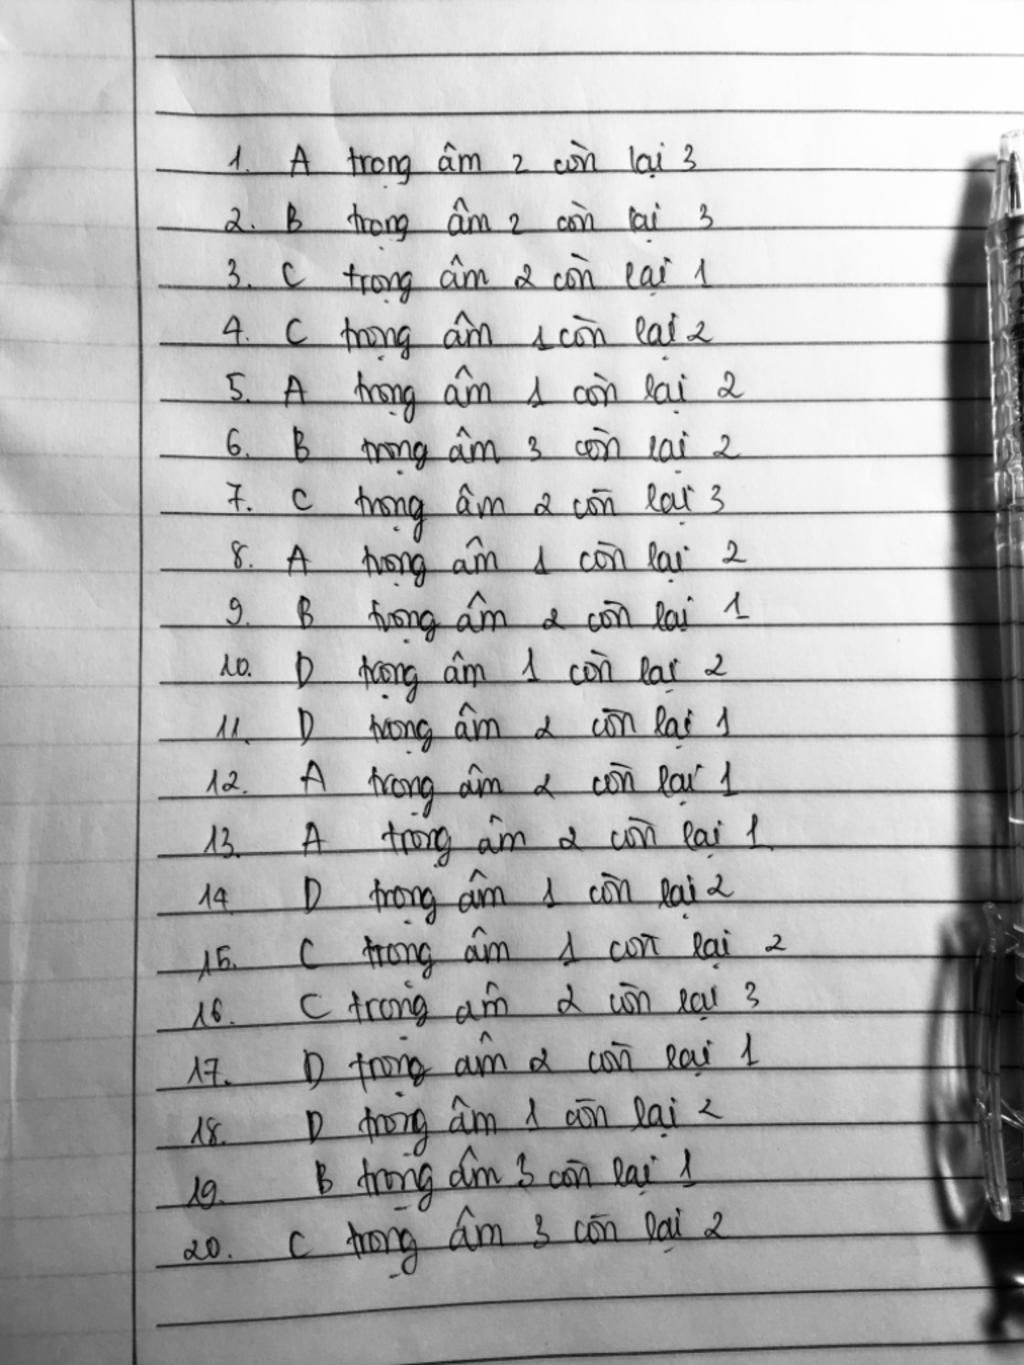 1. A trọng âm 2 còn lại 3
2. B trọng âm 2 còn lại 3
3. C trọng âm 2 còn lại 1
4. C trọng âm 1 còn lại 2
5. A trọng âm 1 còn lại 2
6. B trọng âm 3 còn lại 2
7. C trọng âm 2 còn lại 3
8. A trọng âm 1 còn lại 2
9. B trọng âm 2 còn lại 1
10. D trọng âm 1 còn lại 2
11. D trọng âm 2 còn lại 1
12. A trọng âm 2 còn lại 1
13. A trọng âm 2 còn lại 1
14 D trọng âm 1 còn lại 2
15. C trọng âm 1 còn lại 2
16. C trọng âm 2 còn lại 3
17. D trọng âm 2 còn lại 1
18. D trọng âm 1 còn lại 2
19. B trọng âm 3 còn lại 1
20. C trọng âm 3 còn lại 2